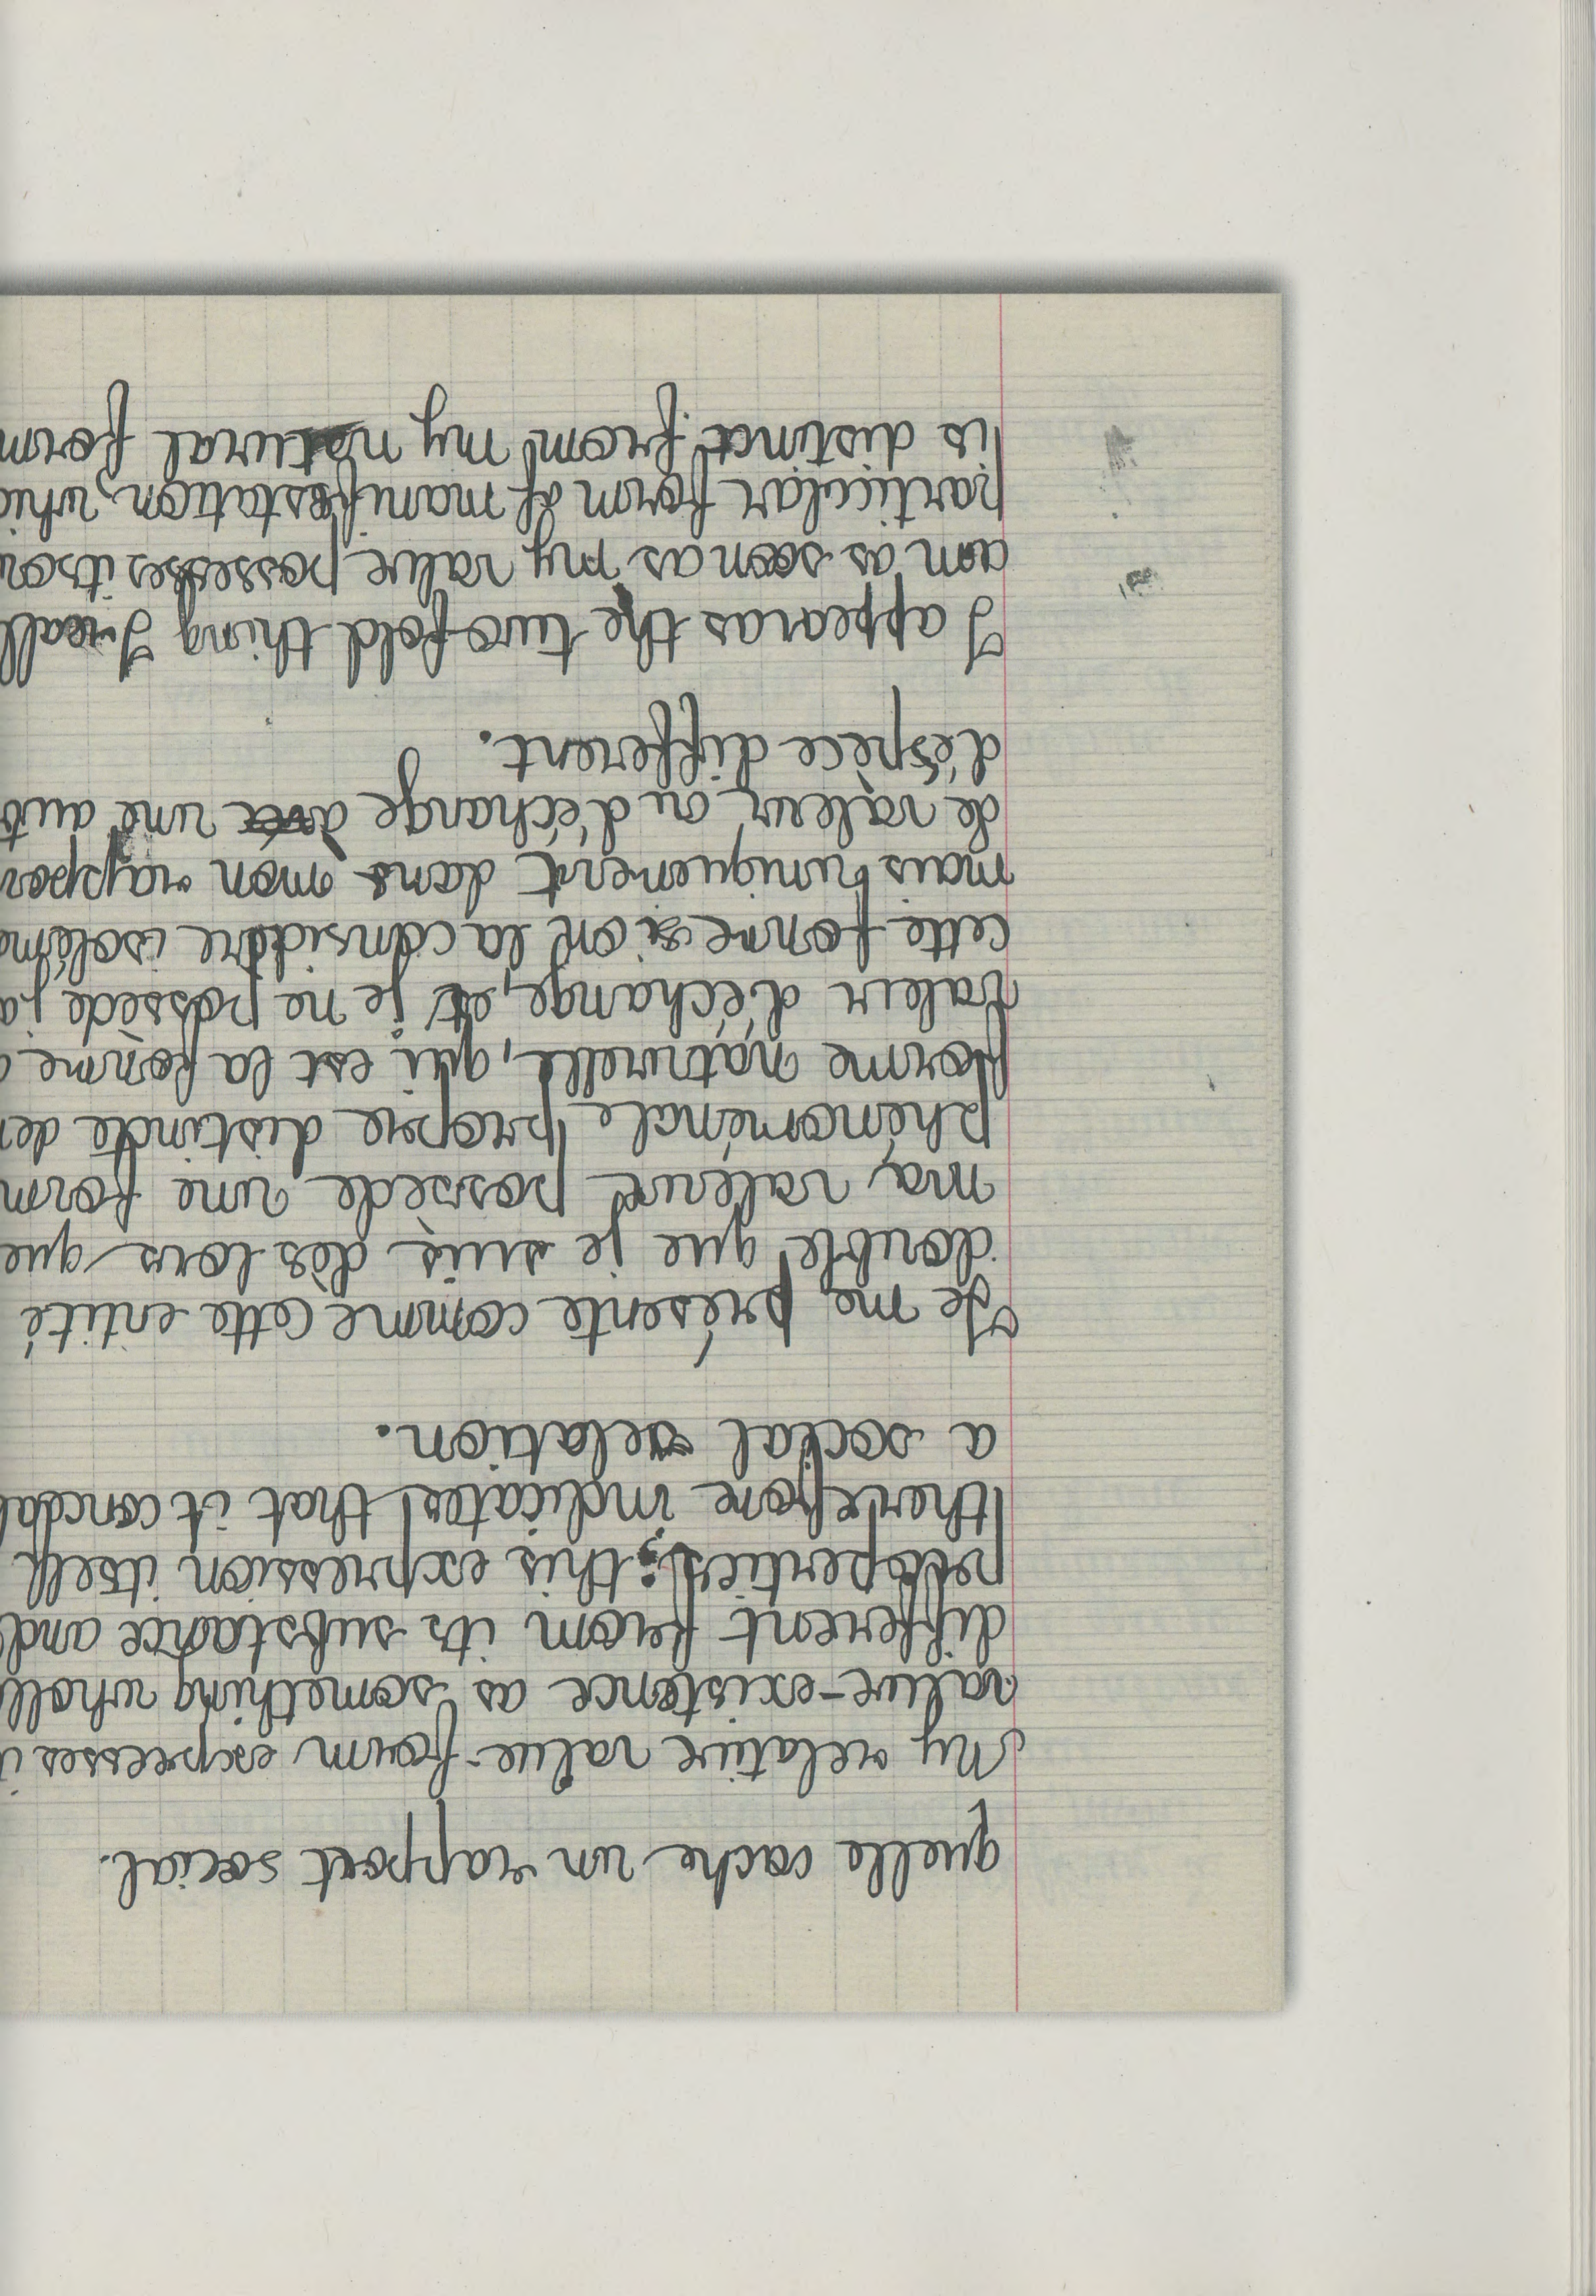 quelle cache un rapport social.
My relative value-form expresses i
value-existence as something wholl
different from its substance and
properties; this expression itself
therefore indicates that it conceal
a social relation.
Je me présente comme cette entité
double que je suis dès lors que
ma valeur possède une form
phénoménale propre distincte de
forme naturelle, qui est la forme
valeur d'échange, et je ne possède ja
cette forme si on la considère isoléme
mais uniquement dans mon rappor
de valeur ou d'échange avec une aut
d'éspèce différent.
I appear as the twofold thing I reall
am as soon as my value possesses its ow
particular form of manifestation, whic
is distinct from my natural form